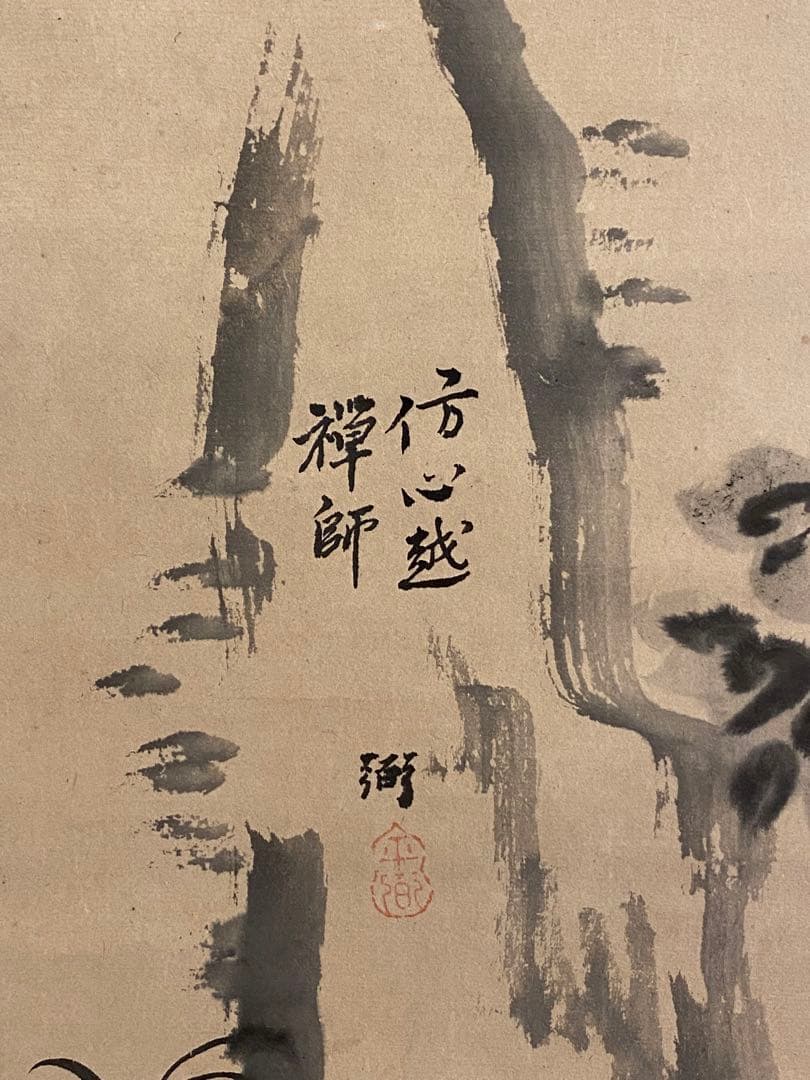 仿心越
禪師
弼